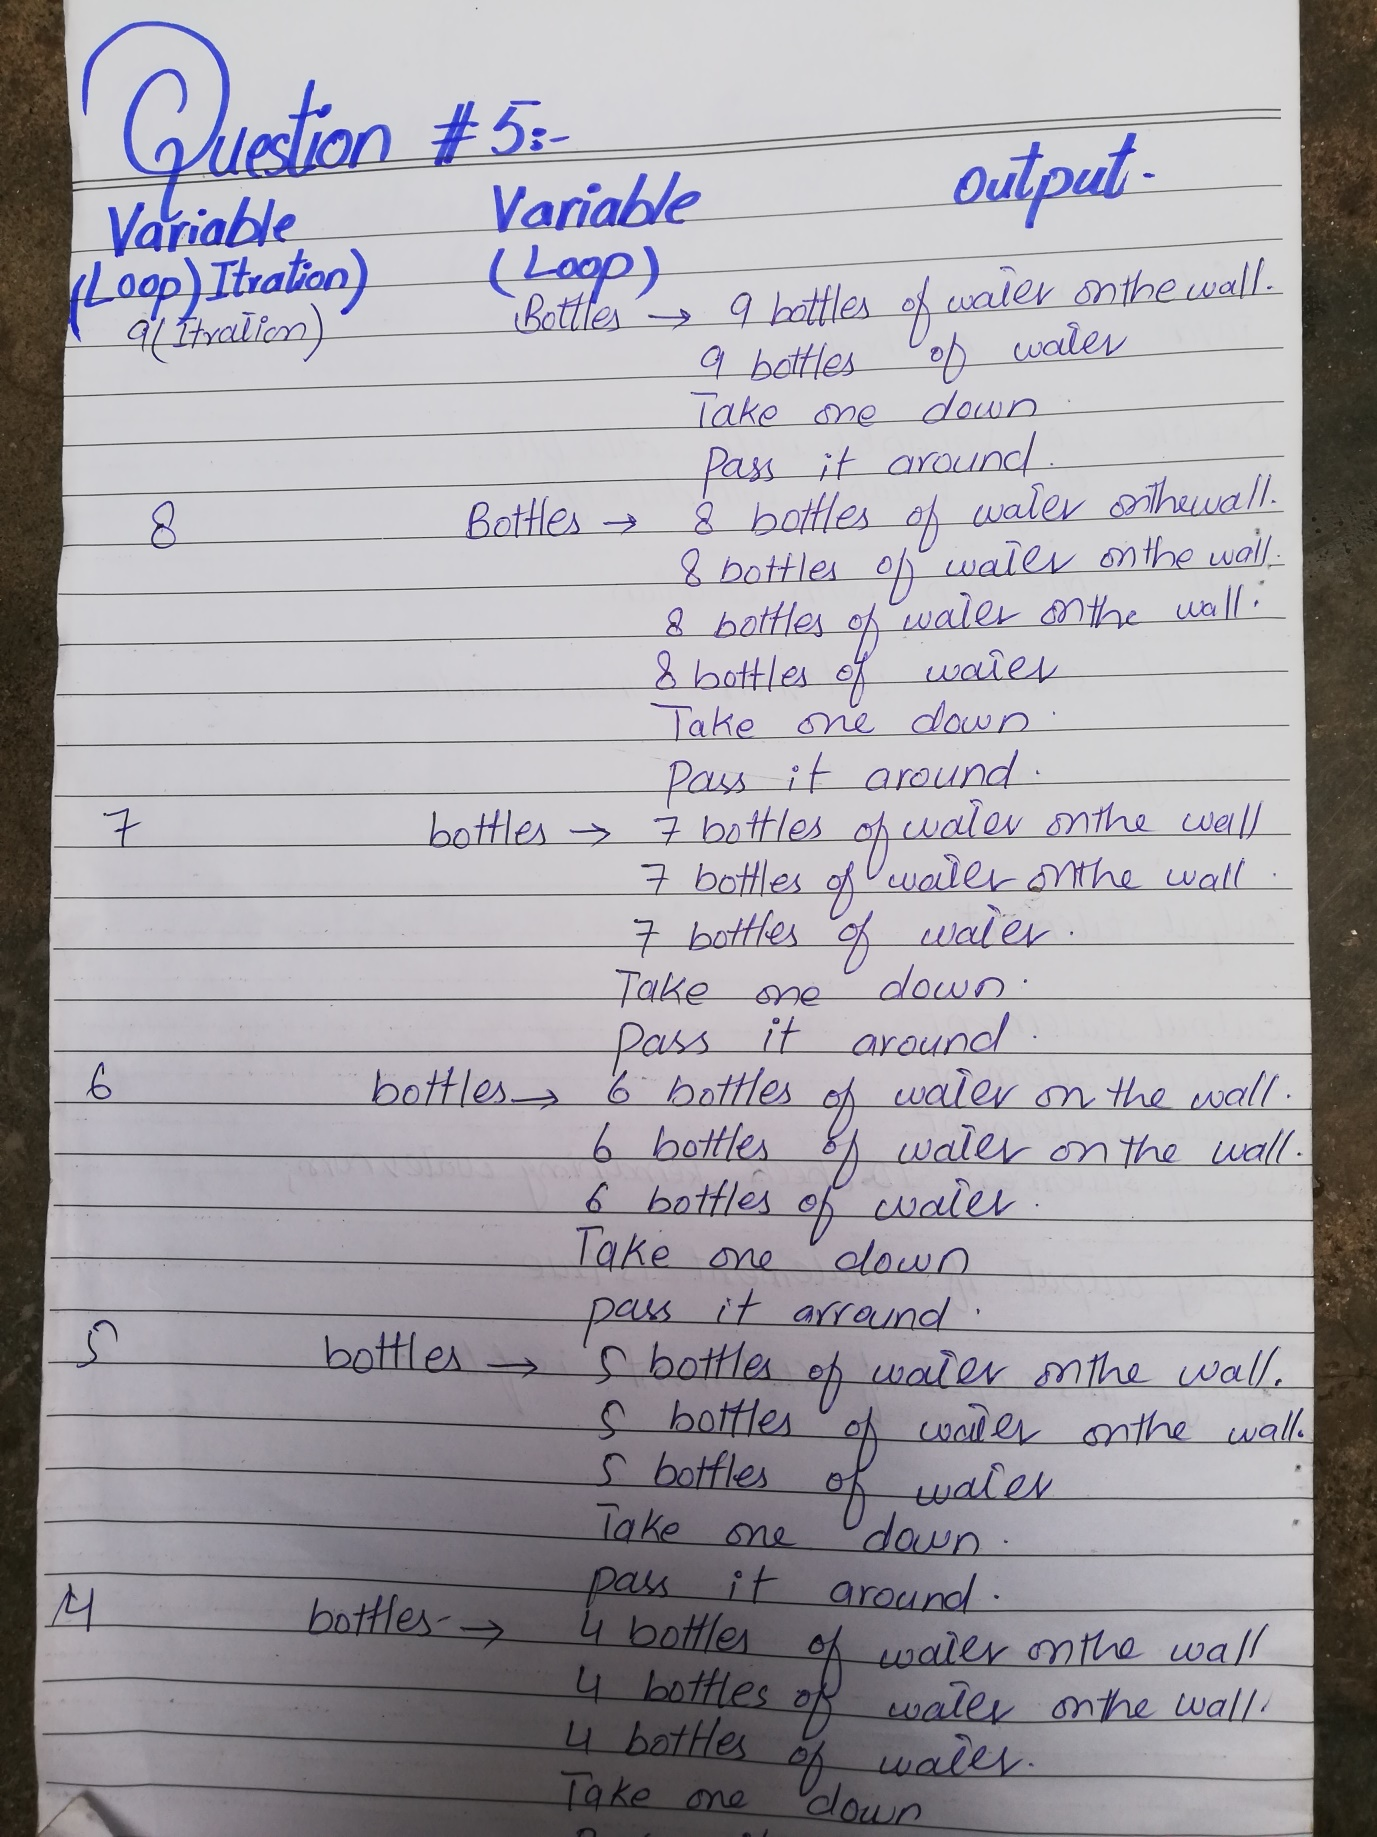 Question # 5:-
Variable Variable output.
(Loop) Itration) (Loop)
9(Itration) Bottles → 9 bottles of water on the wall.
9 bottles of water
Take one down
Pass it around.
8 Bottles → 8 bottles of water on the wall.
8 bottles of water on the wall.
8 bottles of water on the wall.
8 bottles of water
Take one down.
Pass it around.
7 bottles → 7 bottles of water on the wall
7 bottles of water on the wall.
7 bottles of water.
Take one down.
pass it around.
6 bottles → 6 bottles of water on the wall.
6 bottles of water on the wall.
6 bottles of water.
Take one down
pass it arround.
5 bottles → 5 bottles of water on the wall.
5 bottles of water on the wall.
5 bottles of water
Take one down.
pass it around.
4 bottles → 4 bottles of water on the wall
4 bottles of water on the wall.
4 bottles of water.
Take one down